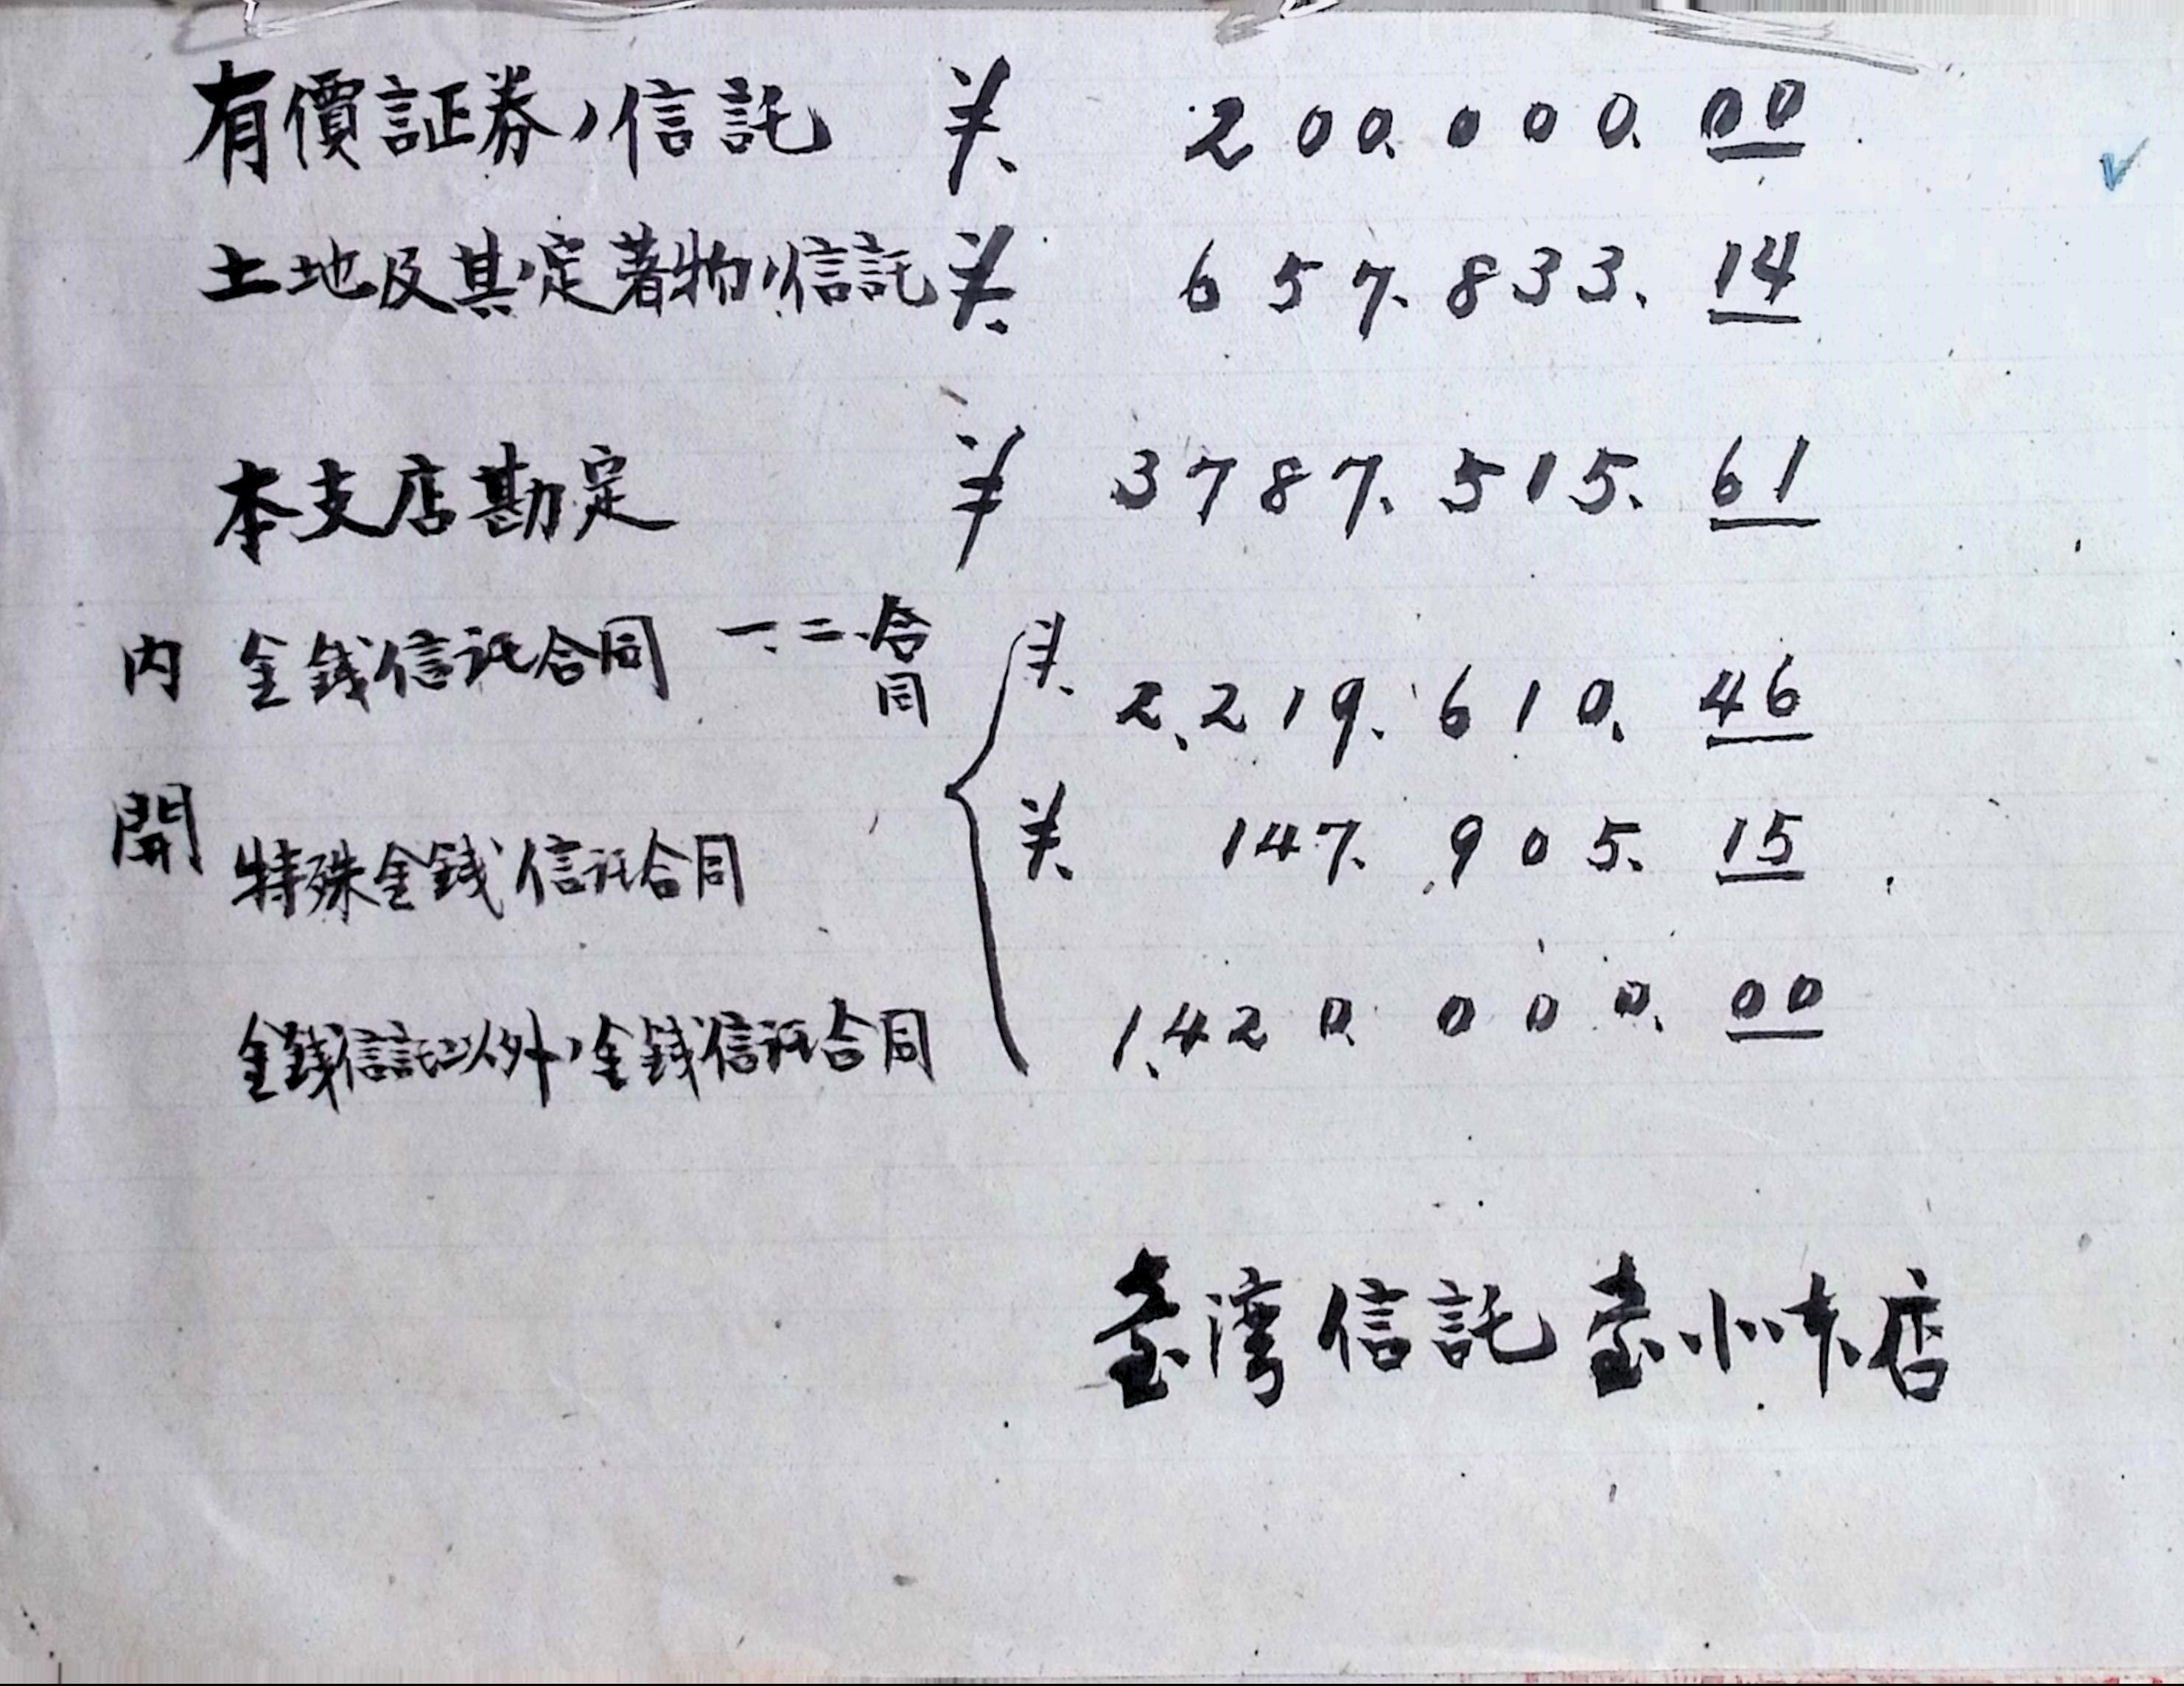 有價証券ノ信託 ¥. 200.000.00
土地及其ノ定著物ノ信託 ¥. 657.833.14
本支店勘定 ¥ 3787.515.61
内 金錢信託合同 一、二、合同 ¥. 2,219.610.46
開 特殊金錢信託合同 ¥. 147.905.15
金錢信託以外ノ金錢信託合同 1,420.000.00
臺灣信託 臺北支店